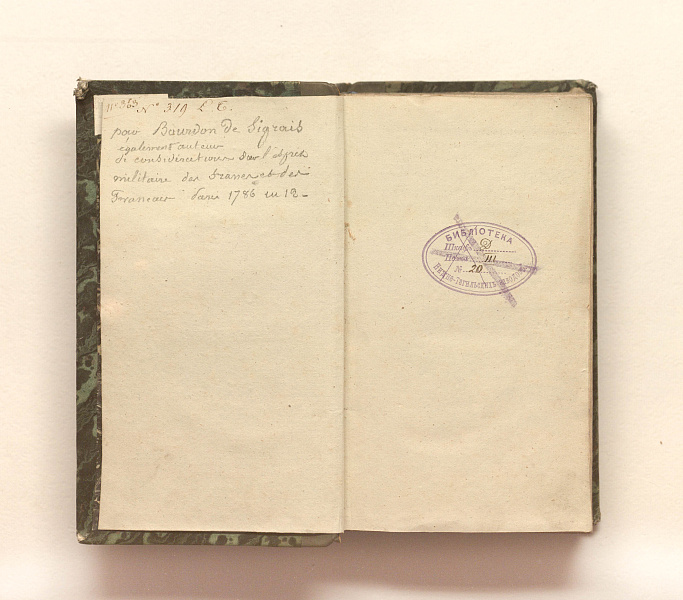 No 353 No 319 L C.
par Bourdon de Sigrais
également auteur
de considérations sur l'esprit
militaire des Francs et des
Francais Paris 1786 in 12.
БИБЛІОТЕКА
Шкафъ D
Полка III
№ 20
Нижне-Тагильскихъ заводовъ